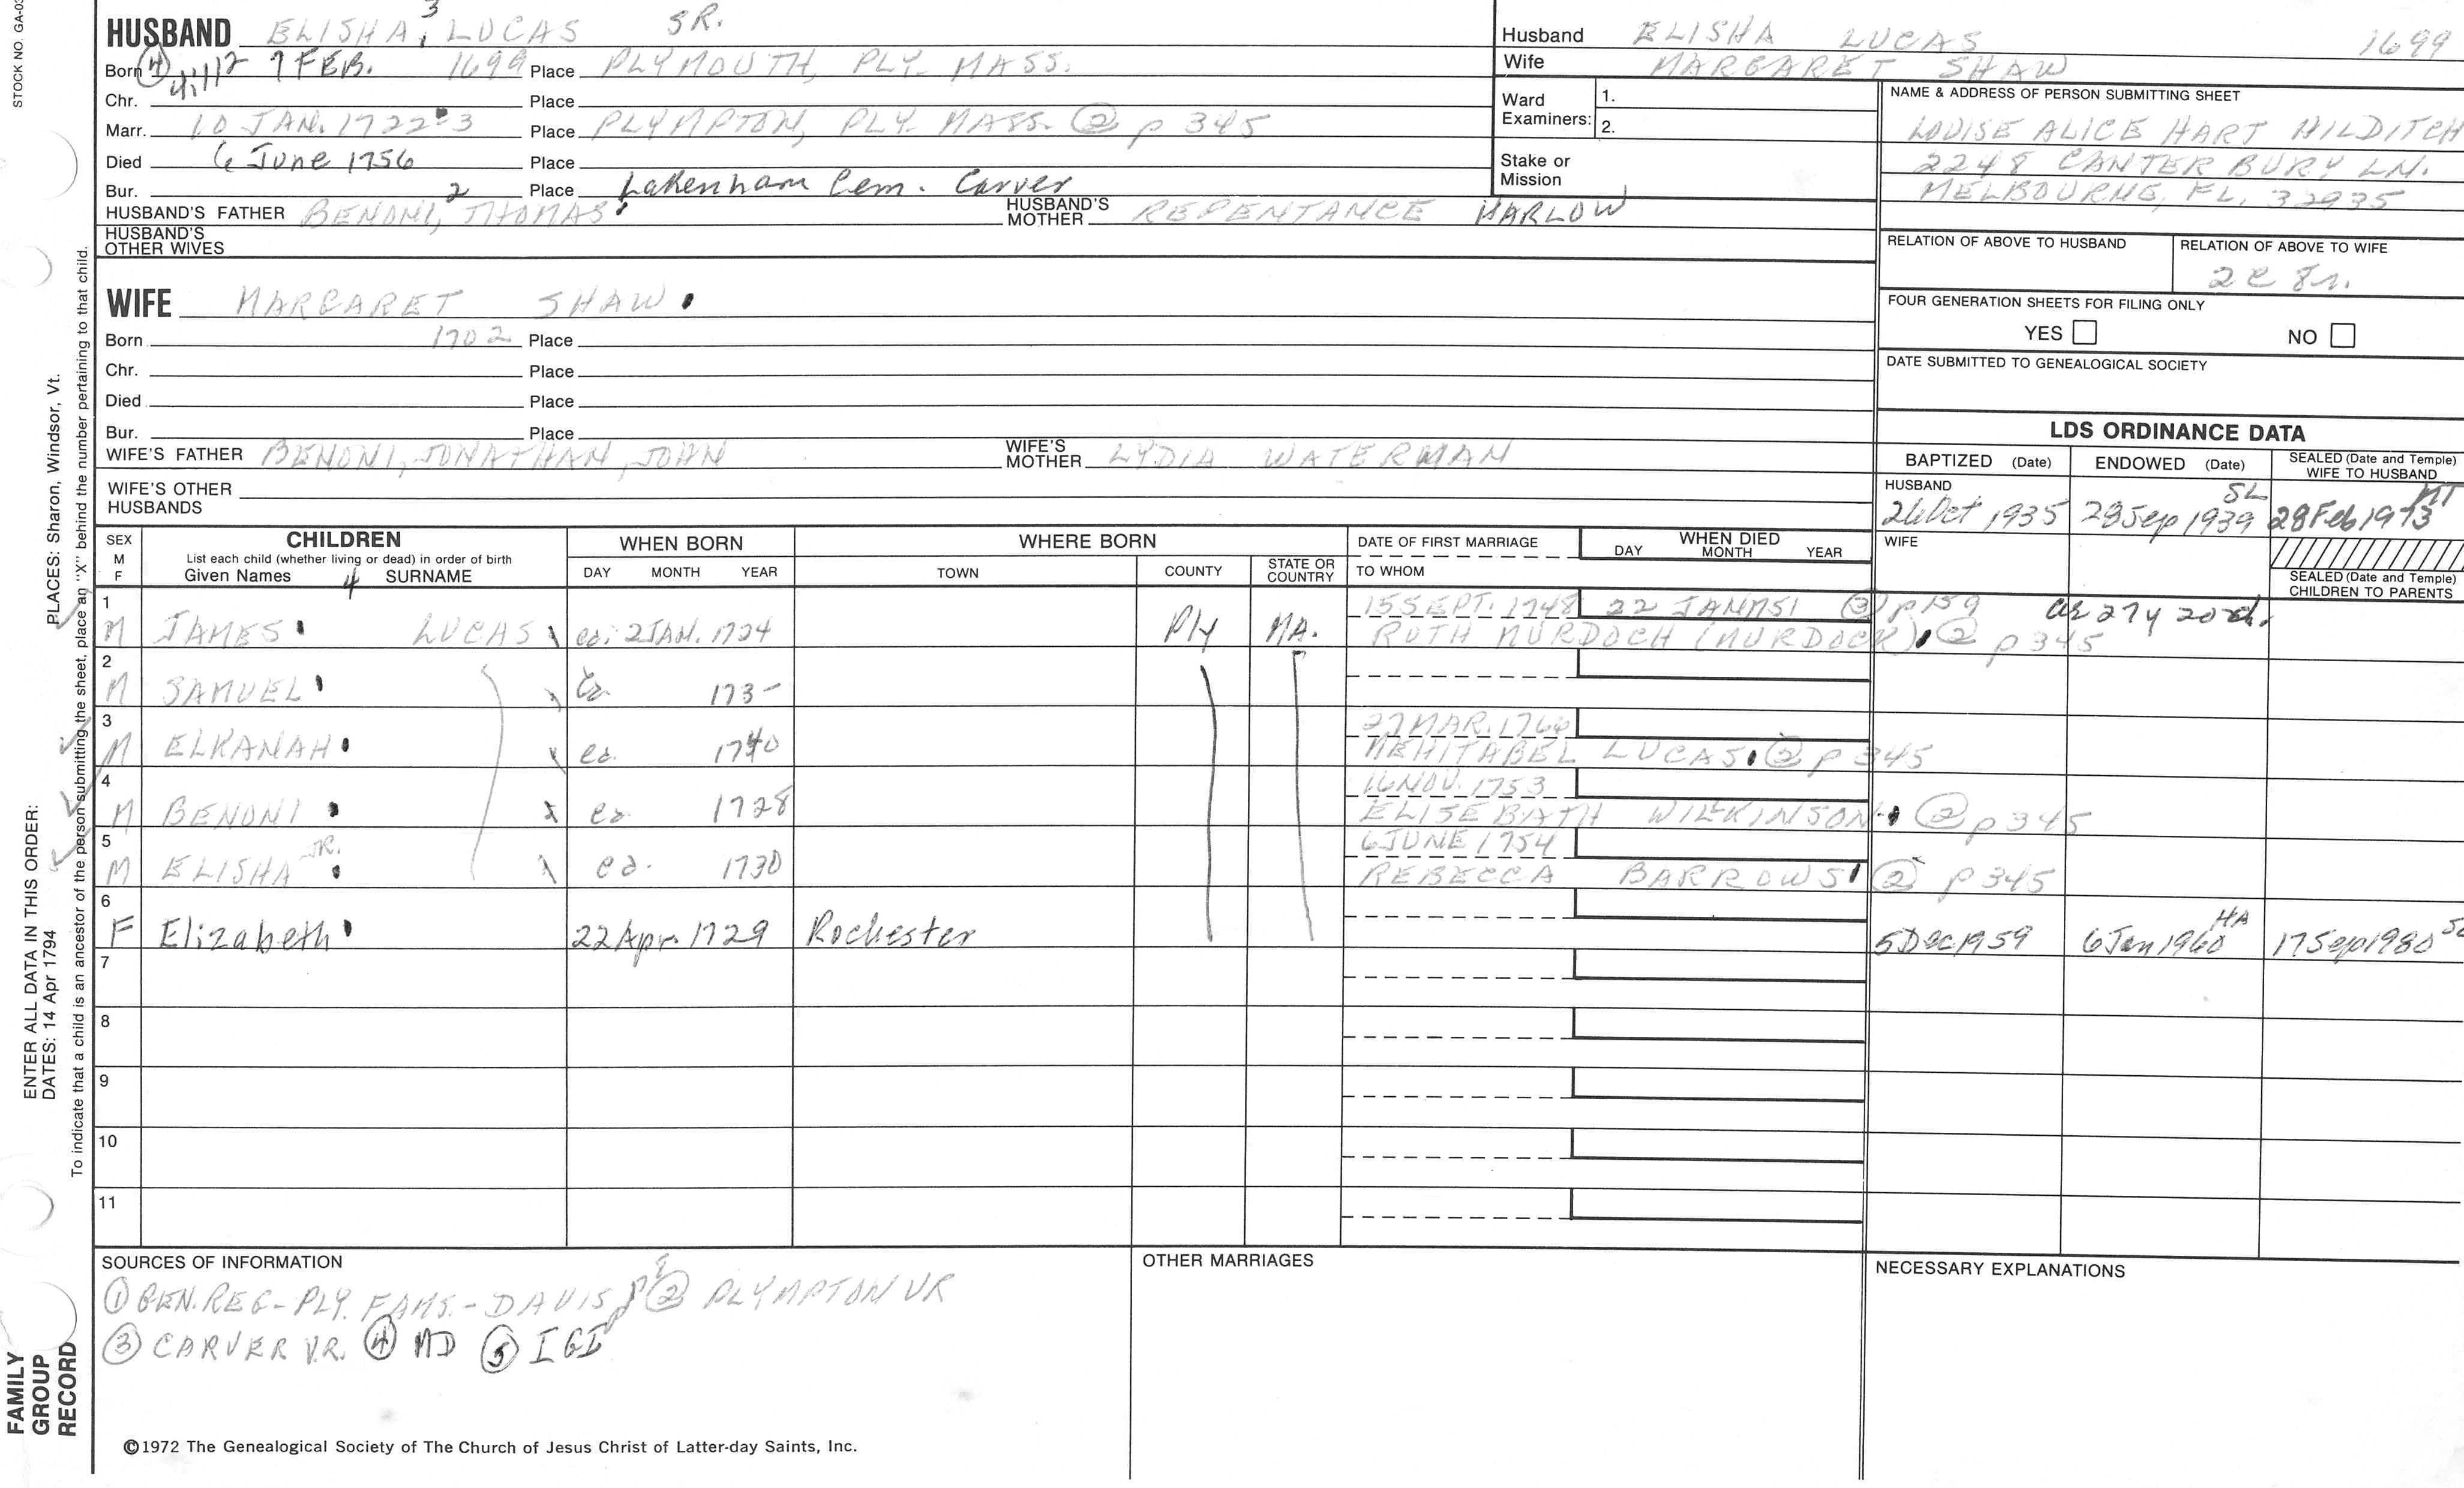 STOCK NO. GA-03
HUSBAND ELISHA 3 LUCAS SR.
Born (4) 4:112 7 FEB. 1699 Place PLYMOUTH, PLY. MASS.
Chr. Place
Marr. 10 JAN. 1722-3 Place PLYMPTON, PLY. MASS. (2) p 345
Died 6 June 1756 Place
Bur. Place Lakenham Cem. Carver
HUSBAND'S FATHER BENONI, 2 THOMAS HUSBAND'S MOTHER REPENTANCE HARLOW
HUSBAND'S OTHER WIVES
WIFE MARGARET SHAW
Born 1702 Place
Chr. Place
Died Place
Bur. Place
WIFE'S FATHER BENONI, JONATHAN, JOHN WIFE'S MOTHER LYDIA WATERMAN
WIFE'S OTHER HUSBANDS
Husband ELISHA LUCAS 1699
Wife MARGARET SHAW
Ward Examiners: 1. 2.
Stake or Mission
NAME & ADDRESS OF PERSON SUBMITTING SHEET
LOUISE ALICE HART HILDITCH
2248 CANTERBURY LN.
MELBOURNE, FL, 32935
RELATION OF ABOVE TO HUSBAND RELATION OF ABOVE TO WIFE
FOUR GENERATION SHEETS FOR FILING ONLY
YES NO
DATE SUBMITTED TO GENEALOGICAL SOCIETY
LDS ORDINANCE DATA
BAPTIZED (Date) ENDOWED (Date) SEALED (Date and Temple) WIFE TO HUSBAND
HUSBAND SL
26 Oct 1935 28 Sep 1939 28 Feb 1973
WIFE
SEALED (Date and Temple) CHILDREN TO PARENTS
SEX M F CHILDREN WHEN BORN WHERE BORN DATE OF FIRST MARRIAGE WHEN DIED
List each child (whether living or dead) in order of birth DAY MONTH YEAR
Given Names 4 SURNAME DAY MONTH YEAR TOWN COUNTY STATE OR COUNTRY TO WHOM
1 15 SEPT. 1748 22 JAN 1751 (3) p 159 27y 20d.
M JAMES LUCAS 2 JAN. 1724 Ply MA. RUTH MURDOCH (MURDOCK) (2) p 345
2
M SAMUEL ca 173-
3 27 MAR. 1766
M ELKANAH ca. 1740 MEHITABEL LUCAS (2) p 345
4 16 NOV. 1753
M BENONI ca 1728 ELISEBATH WILKINSON (2) p 345
5 6 JUNE 1754
M ELISHA JR. ca. 1730 REBECCA BARROWS (2) p 345
6 HA
F Elizabeth 22 Apr. 1729 Rochester 5 Dec 1959 6 Jan 1960 17 Sep 1980
7
8
9
10
11
SOURCES OF INFORMATION OTHER MARRIAGES NECESSARY EXPLANATIONS
(1) GEN. REG - PLY. FAMS. - DAVIS (2) PLYMPTON VR
(3) CARVER V.R. (4) MD (5) IGI
©1972 The Genealogical Society of The Church of Jesus Christ of Latter-day Saints, Inc.
PLACES: Sharon, Windsor, Vt.
To indicate that a child is an ancestor of the person submitting the sheet, place an "X" behind the number pertaining to that child.
ENTER ALL DATA IN THIS ORDER:
DATES: 14 Apr 1794
FAMILY
GROUP
RECORD